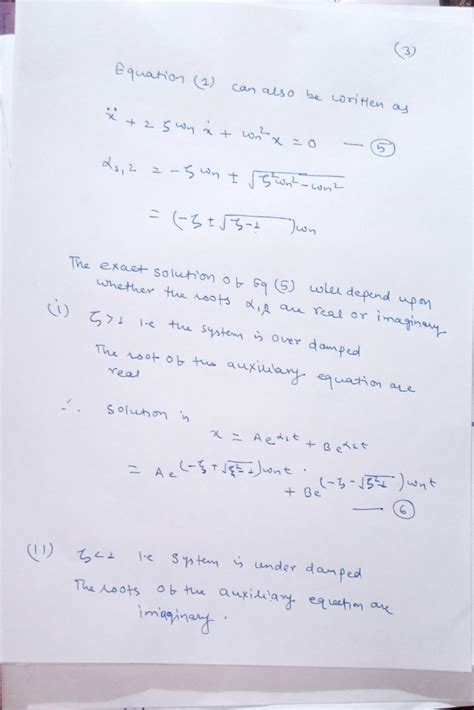 (3)
Equation (1) can also be written as
ẍ + 2 ζ ωn ẋ + ωn² x = 0 — (5)
α1,2 = -ζ ωn ± √ζ²ωn² - ωn²
= (-ζ ± √ζ-1 ) ωn
The exact solution of Eq (5) will depend upon
whether the roots α1,2 are real or imaginary
(i) ζ>1 i-e the system is over damped
The root of the auxiliary equation are
real
∴ solution is
x = A e^α1t + B e^α2t
= A e^(-ζ + √ζ²-1) ωnt
+ B e^(-ζ - √ζ²-1) ωnt
— (6)
(11) ζ<1 i-e system is under damped
The roots of the auxiliary equation are
imaginary.